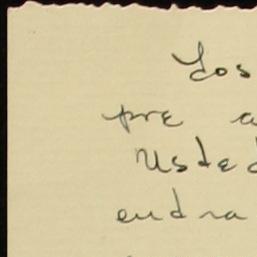 Los
pre a
Usted
endra